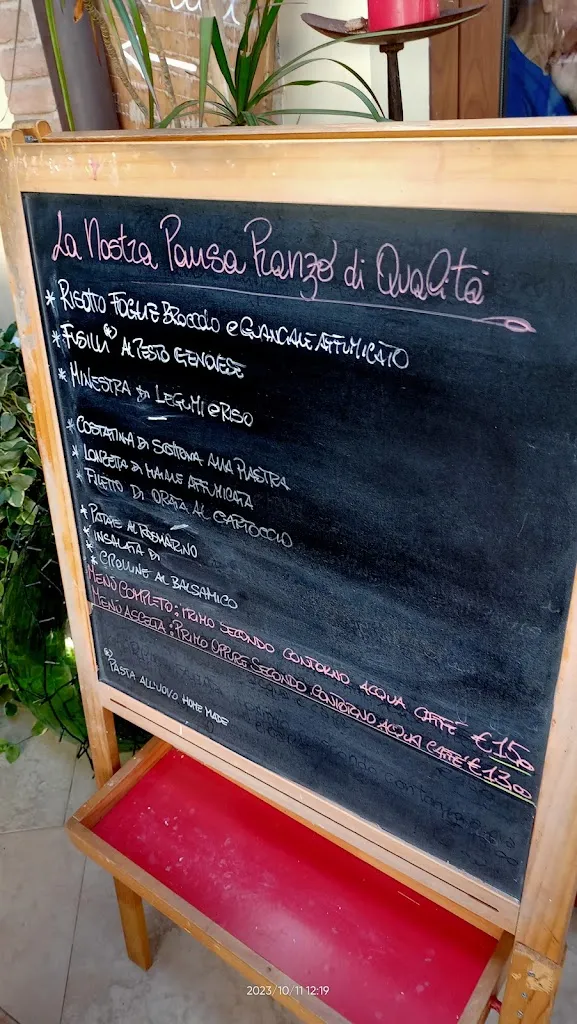 La Nostra Pausa Pranzo di Qualità
* RISOTTO FOGLIE BROCCOLO e GUANCIALE AFFUMICATO
* FUSILLI AL PESTO GENOVESE
* MINESTRA di LEGUMI e RISO
* COSTATINA DI SCOTTONA ALLA PIASTRA
* LONZETTA DI MAIALE AFFUMICATA
* FILETTO DI ORATA AL CARTOCCIO
* PATATE AL ROSMARINO
* INSALATA DI
* CIPOLLINE AL BALSAMICO
MENÙ COMPLETO: PRIMO SECONDO CONTORNO ACQUA CAFFÈ €15,00
MENÙ A SCELTA: PRIMO OPPURE SECONDO CONTORNO ACQUA CAFFÈ €13,00
PASTA ALL'UOVO HOME MADE
2023/10/11 12:19